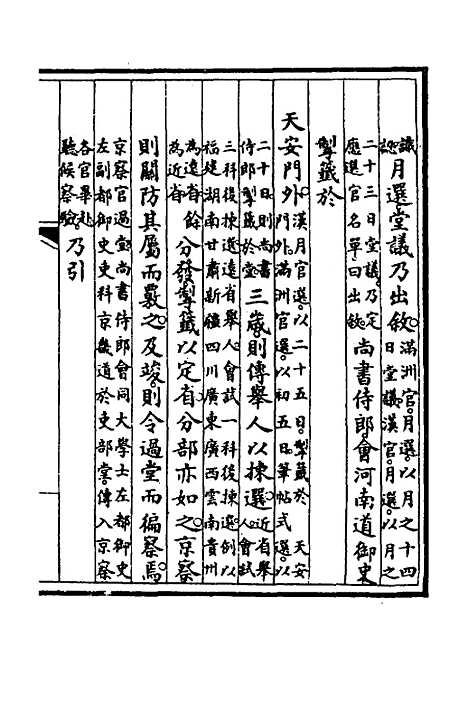 識
認
月選堂議乃出敘滿洲官月選以月之十四
日堂議漢官月選以月之
二十三日堂議乃定
應選官名單曰出敘尚書侍郎會河南道御史
掣籤於
天安門外漢月官選以二十五日掣籤於 天安
門外滿洲官選以初五日筆帖式選以
二十日則尚書
侍郎掣籤於堂三歲則傳舉人以揀選近省舉
人會試
三科後揀選遠省舉人會試一科後揀選例以
福建湖南甘肅新疆四川廣東廣西雲南貴州
為遠省餘
為近省分發掣籤以定省分部亦如之京察
則關防其屬而覈之及竣則令過堂而徧察焉
京察官過堂尚書侍郎會同大學士左都御史
左副都御史吏科京畿道於吏部堂傳入京察
各官畢赴
聽候察驗乃引